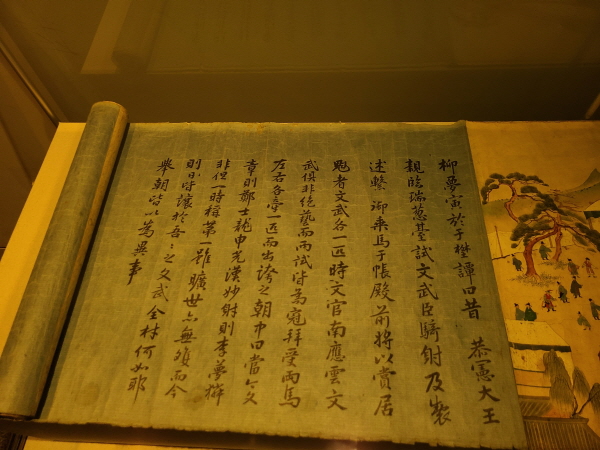 柳夢寅於于埜譚曰昔 恭憲大王
親臨瑞葱臺試文武臣騎射及製
述繫 御乘馬于帳殿前將以賞居
魁者文武各一匹時文官南應雲文
武俱非絶藝而兩試皆爲冠拜受兩馬
左右各牽一匹而出誇之朝中曰當今文
章則鄭士龍申光漢妙射則李夢麟
非但一時稱第一雖曠世亦無雙而今
則日皆讓於吾〻之文武全材何如耶
擧朝皆以爲異事